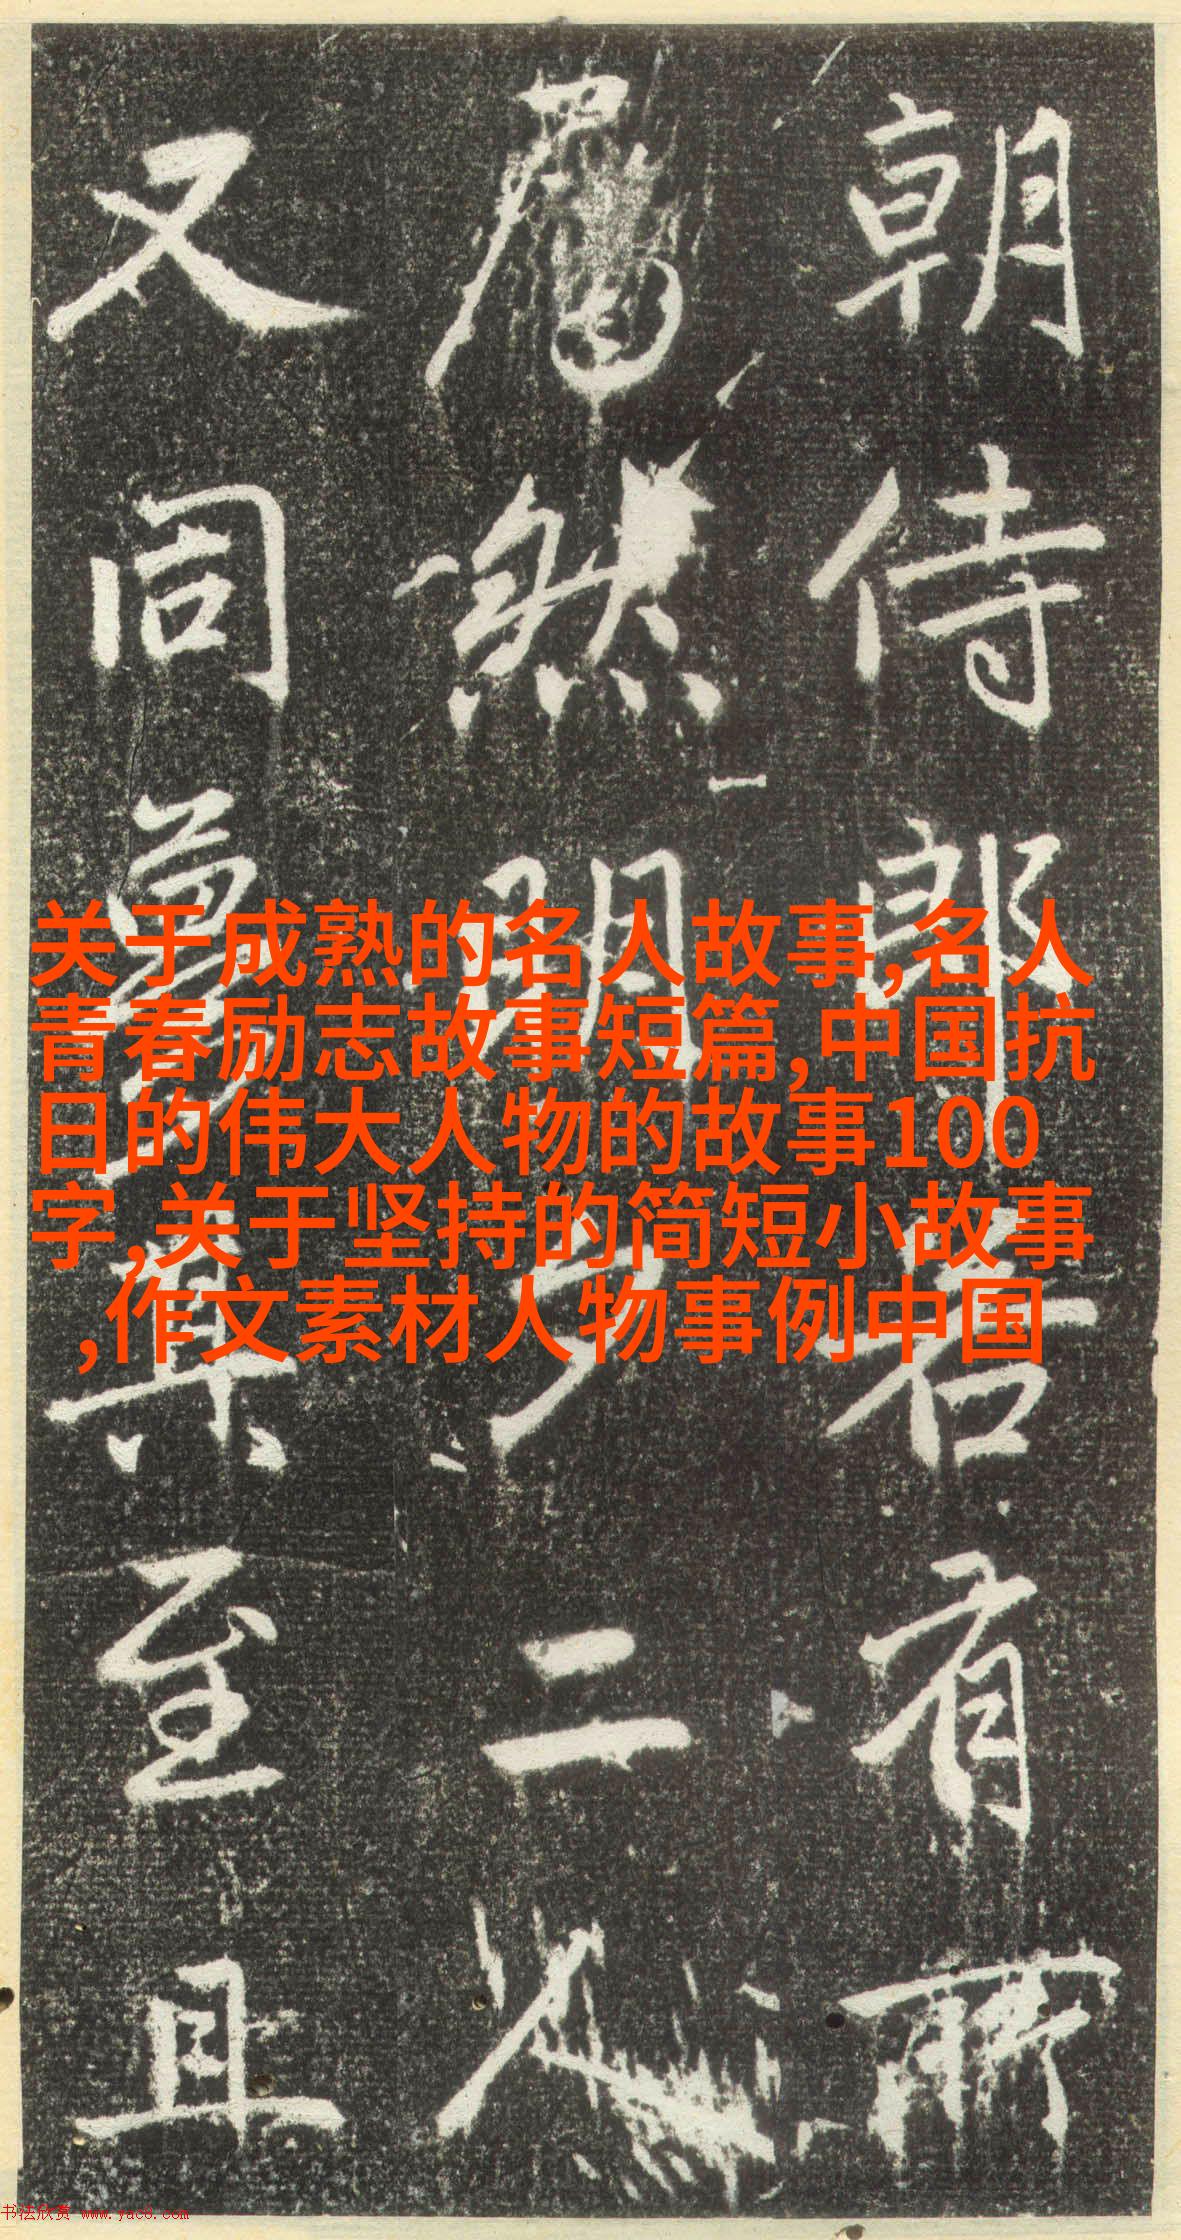 朝侍郎若有所
然明二人
又同其至且
关于成熟的名人故事,名人
青春励志故事短篇,中国抗
日的伟大人物的故事100
字,关于坚持的简短小故事
,作文素材人物事例中国
书法欣赏 www.yac8.com